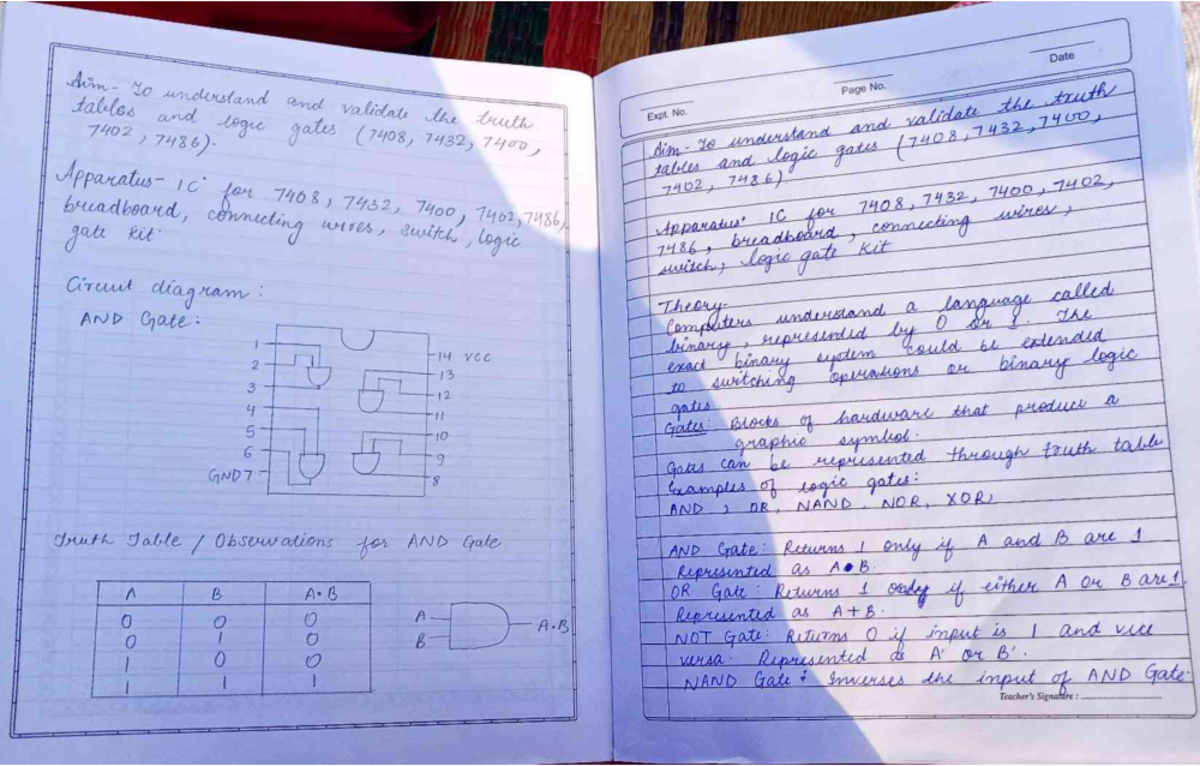 Aim - To understand and validate the truth
tables and logic gates (7408, 7432, 7400,
7402, 7486).
Apparatus - IC for 7408, 7432, 7400, 7402, 7486,
breadboard, connecting wires, switch, logic
gate kit
Circuit diagram :
AND Gate :
1
2
3
4
5
6
GND 7
14 VCC
13
12
11
10
9
8
Truth Table / Observations for AND Gate
A B A•B
0 0 0
0 1 0
1 0 0
1 1 1
A
B
A.B
Date
Page No.
Expt. No.
Aim - To understand and validate the truth
tables and logic gates (7408, 7432, 7400,
7402, 7486)
Apparatus IC for 7408, 7432, 7400, 7402,
7486, breadboard, connecting wires,
switch, logic gate kit
Theory-
Computers understand a language called
binary, represented by 0 or 1. The
exact binary system could be extended
to switching operations or binary logic
gates
Gates: Blocks of hardware that produce a
graphic symbol.
Gates can be represented through truth table
Examples of logic gates:
AND, OR, NAND, NOR, XOR
AND Gate: Returns 1 only if A and B are 1
Represented as A•B.
OR Gate: Returns 1 only if either A or B are 1.
Represented as A+B.
NOT Gate: Returns 0 if input is 1 and vice
versa. Represented as A' or B'.
NAND Gate: Inverses the input of AND Gate.
Teacher's Signature :